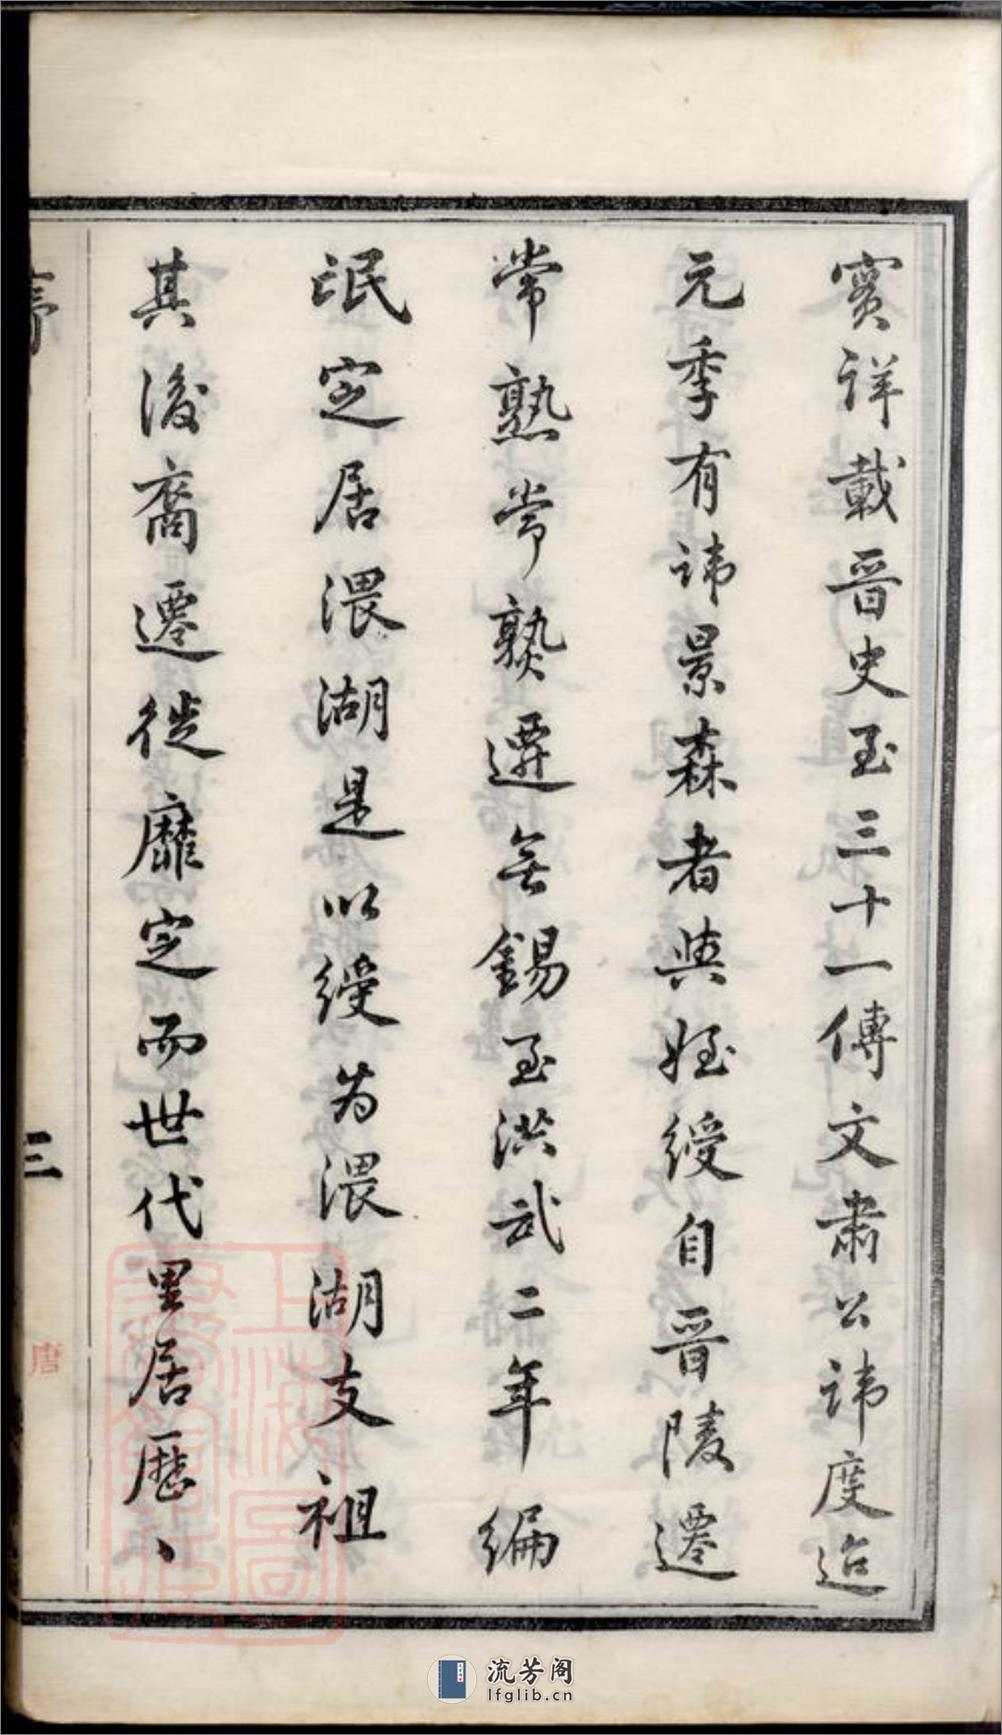 實詳載晉史至三十一傳文肅公諱度迨
元季有諱景森者與姪綬自晉陵遷
常熟常熟遷無錫至洪武二年編
氓定居㴪湖是以綬為㴪湖支祖
其後裔遷徙靡定而世代里居歷〻
三
唐
流芳阁
lfglib.cn